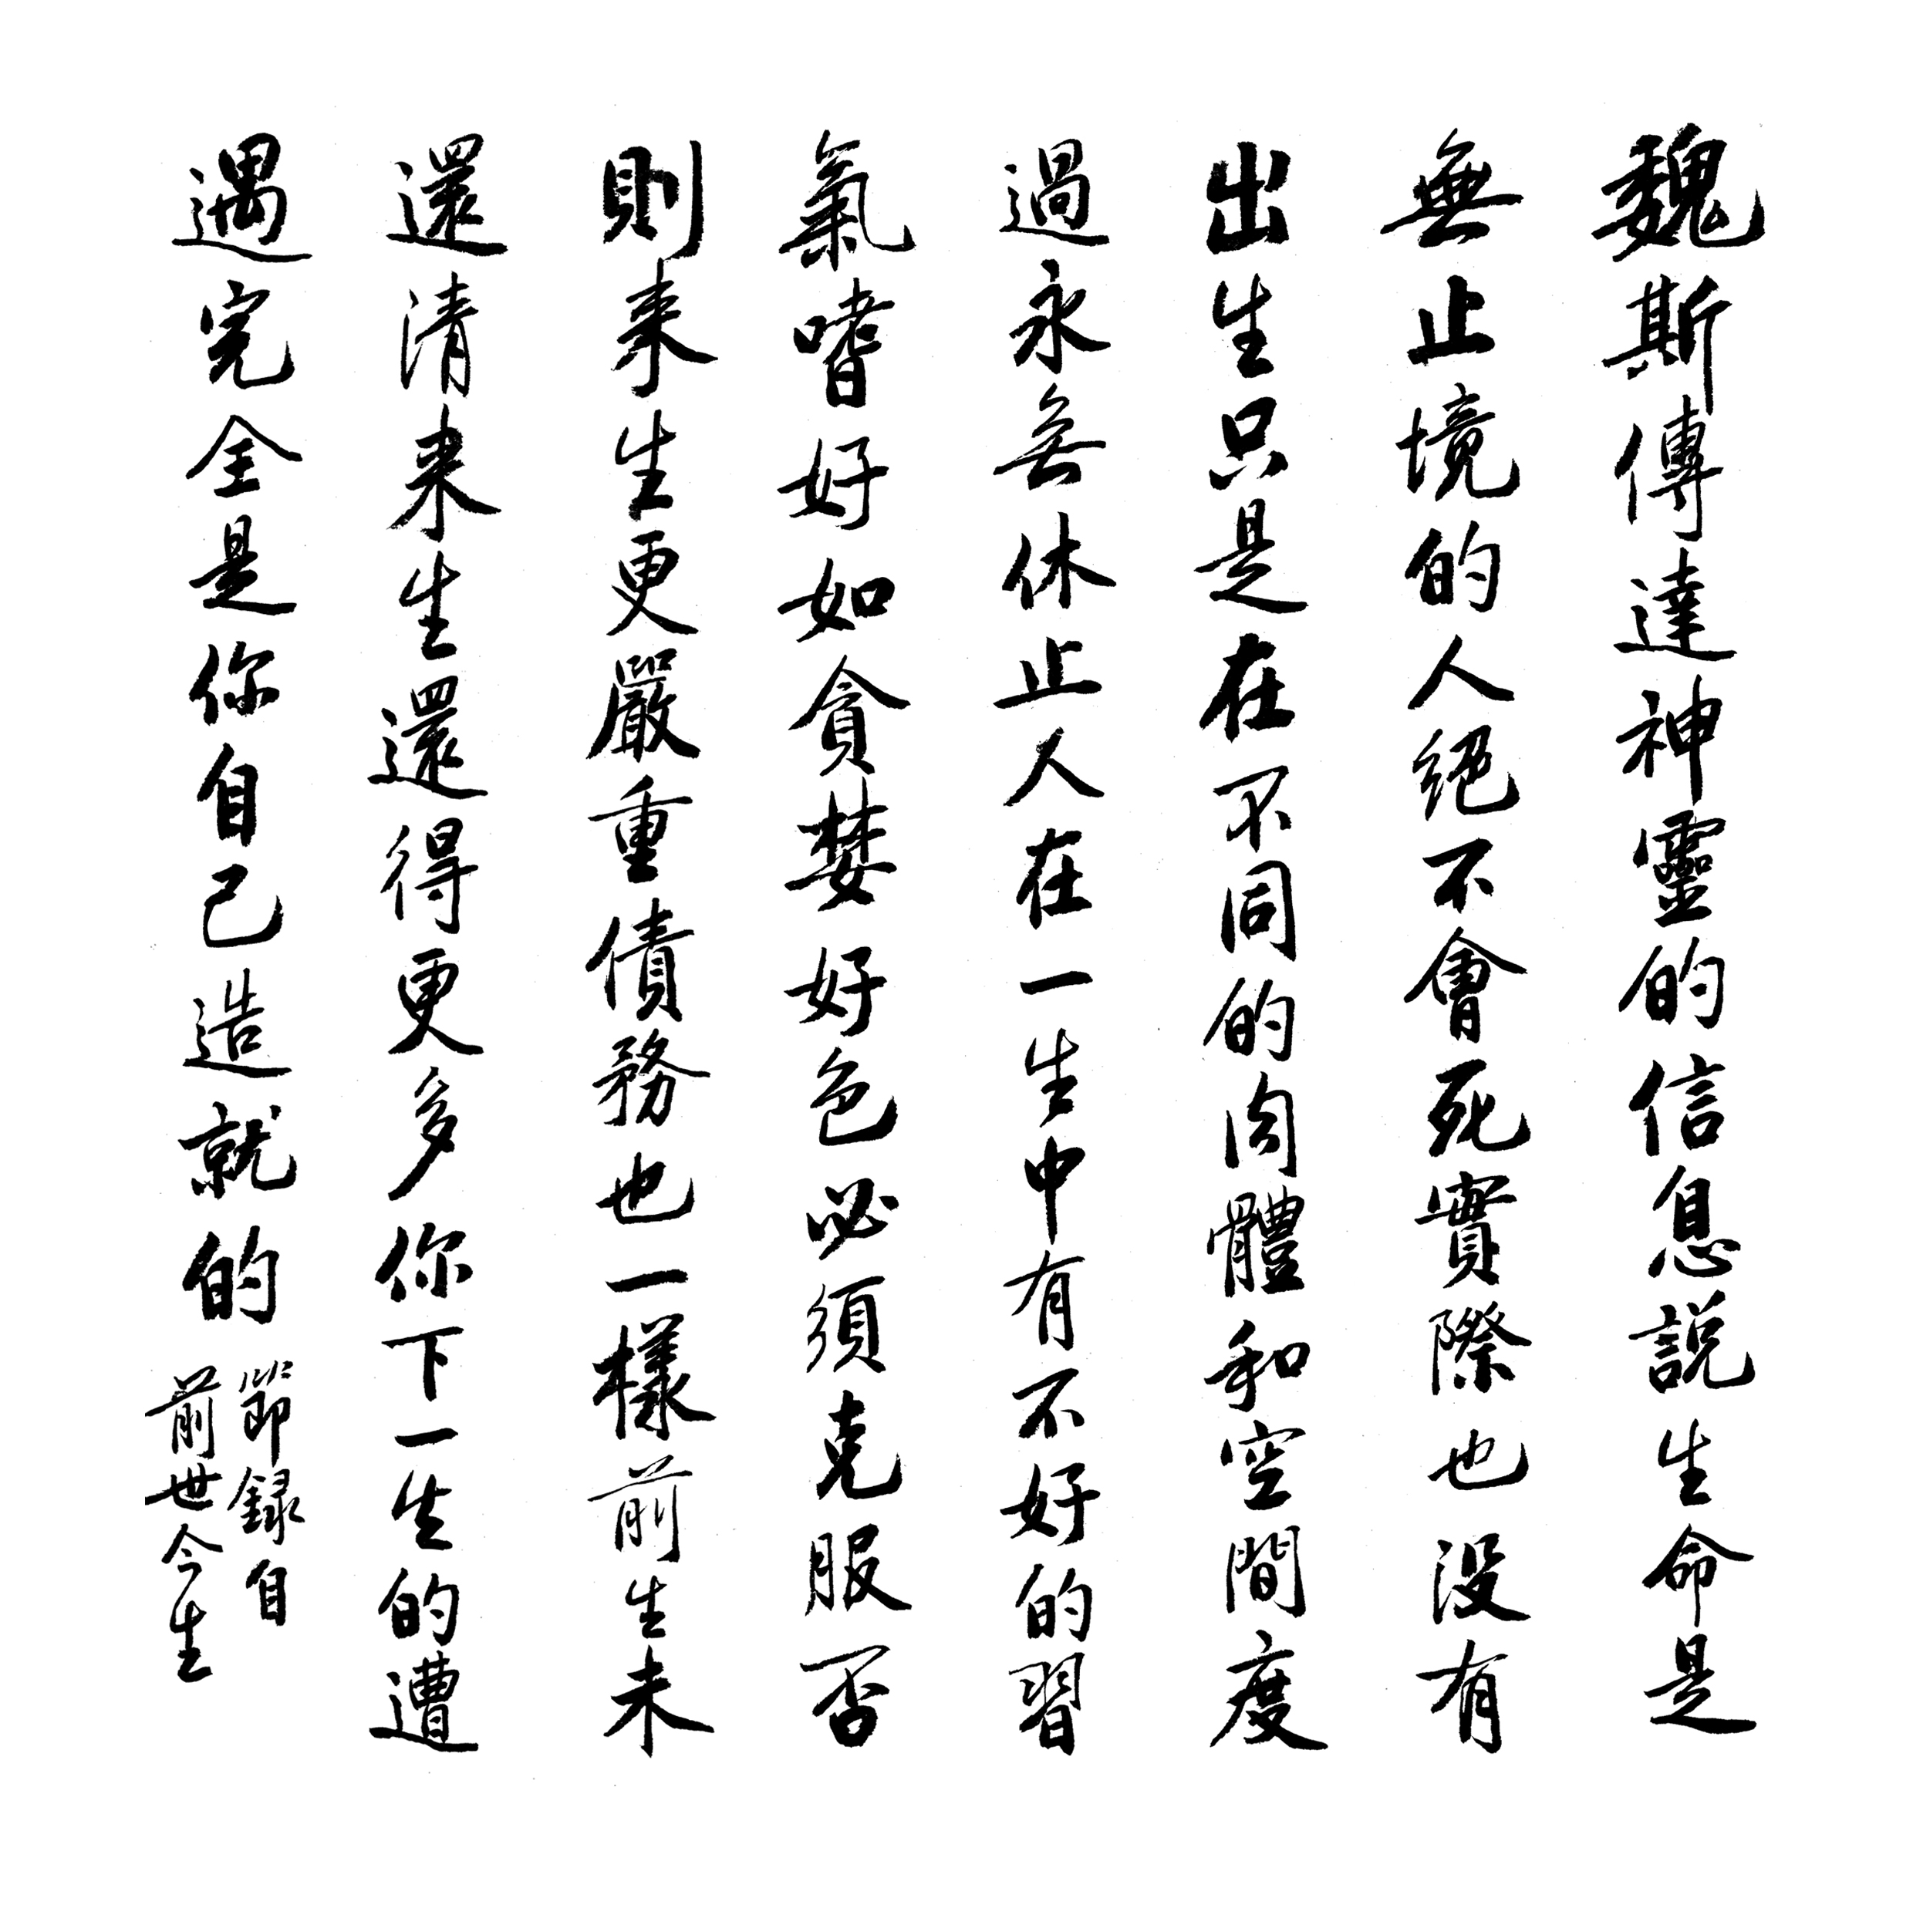 魏斯傳達神靈的信息説生命是
無止境的人絕不會死實際也没有
出生只是在不同的肉體和空間度
過永無休止人在一生中有不好的習
氣嗜好如貪婪好色必須克服否
則来生更嚴重債務也一樣前生未
還清来生還得更多你下一生的遭
遇完全是你自己造就的
節録自
前世今生